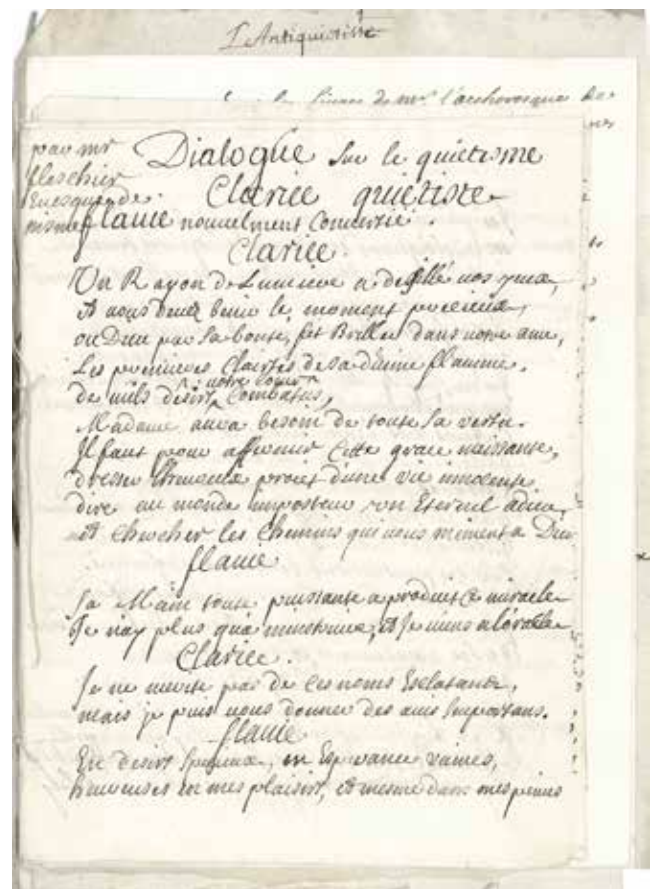 L'Antiquietisme
les livres de mr. l'archevesque de
par mr
fleschier
Euesque de
nismes
Dialogue sur le quietisme
Clarice quietiste
flauie nouuelment Conuertie.
Clarice
Un Rayon de Lumiere a desillé vos yeux,
et vous deuez benir le moment precieux,
ou Dieu par sa bonté, fit Briller dans votre ame,
Les premieres Clairtés de sa diuine flamme.
de mils desirs votre coeur Combatus,
Madame aura besoin de toute sa vertu.
Il faut pour affermir Cette grace naissante,
dresser l'heureux proiet d'une vie innocente
dire au monde imposteur un Eternel adieu,
et Chercher les Chemins qui nous meinent a Dieu
flauie
Sa Main toute puissante a produit Ce miracle
Je n'ay plus qu'a m'instruire, et Je viens a l'oracle
Clarice.
Je ne merite pas de Ces noms Esclatants,
mais je puis vous donner des auis Importans.
flauie
En desirs, en Esperance vaines,
heureuse en mes plaisirs, et mesme dans mes peines